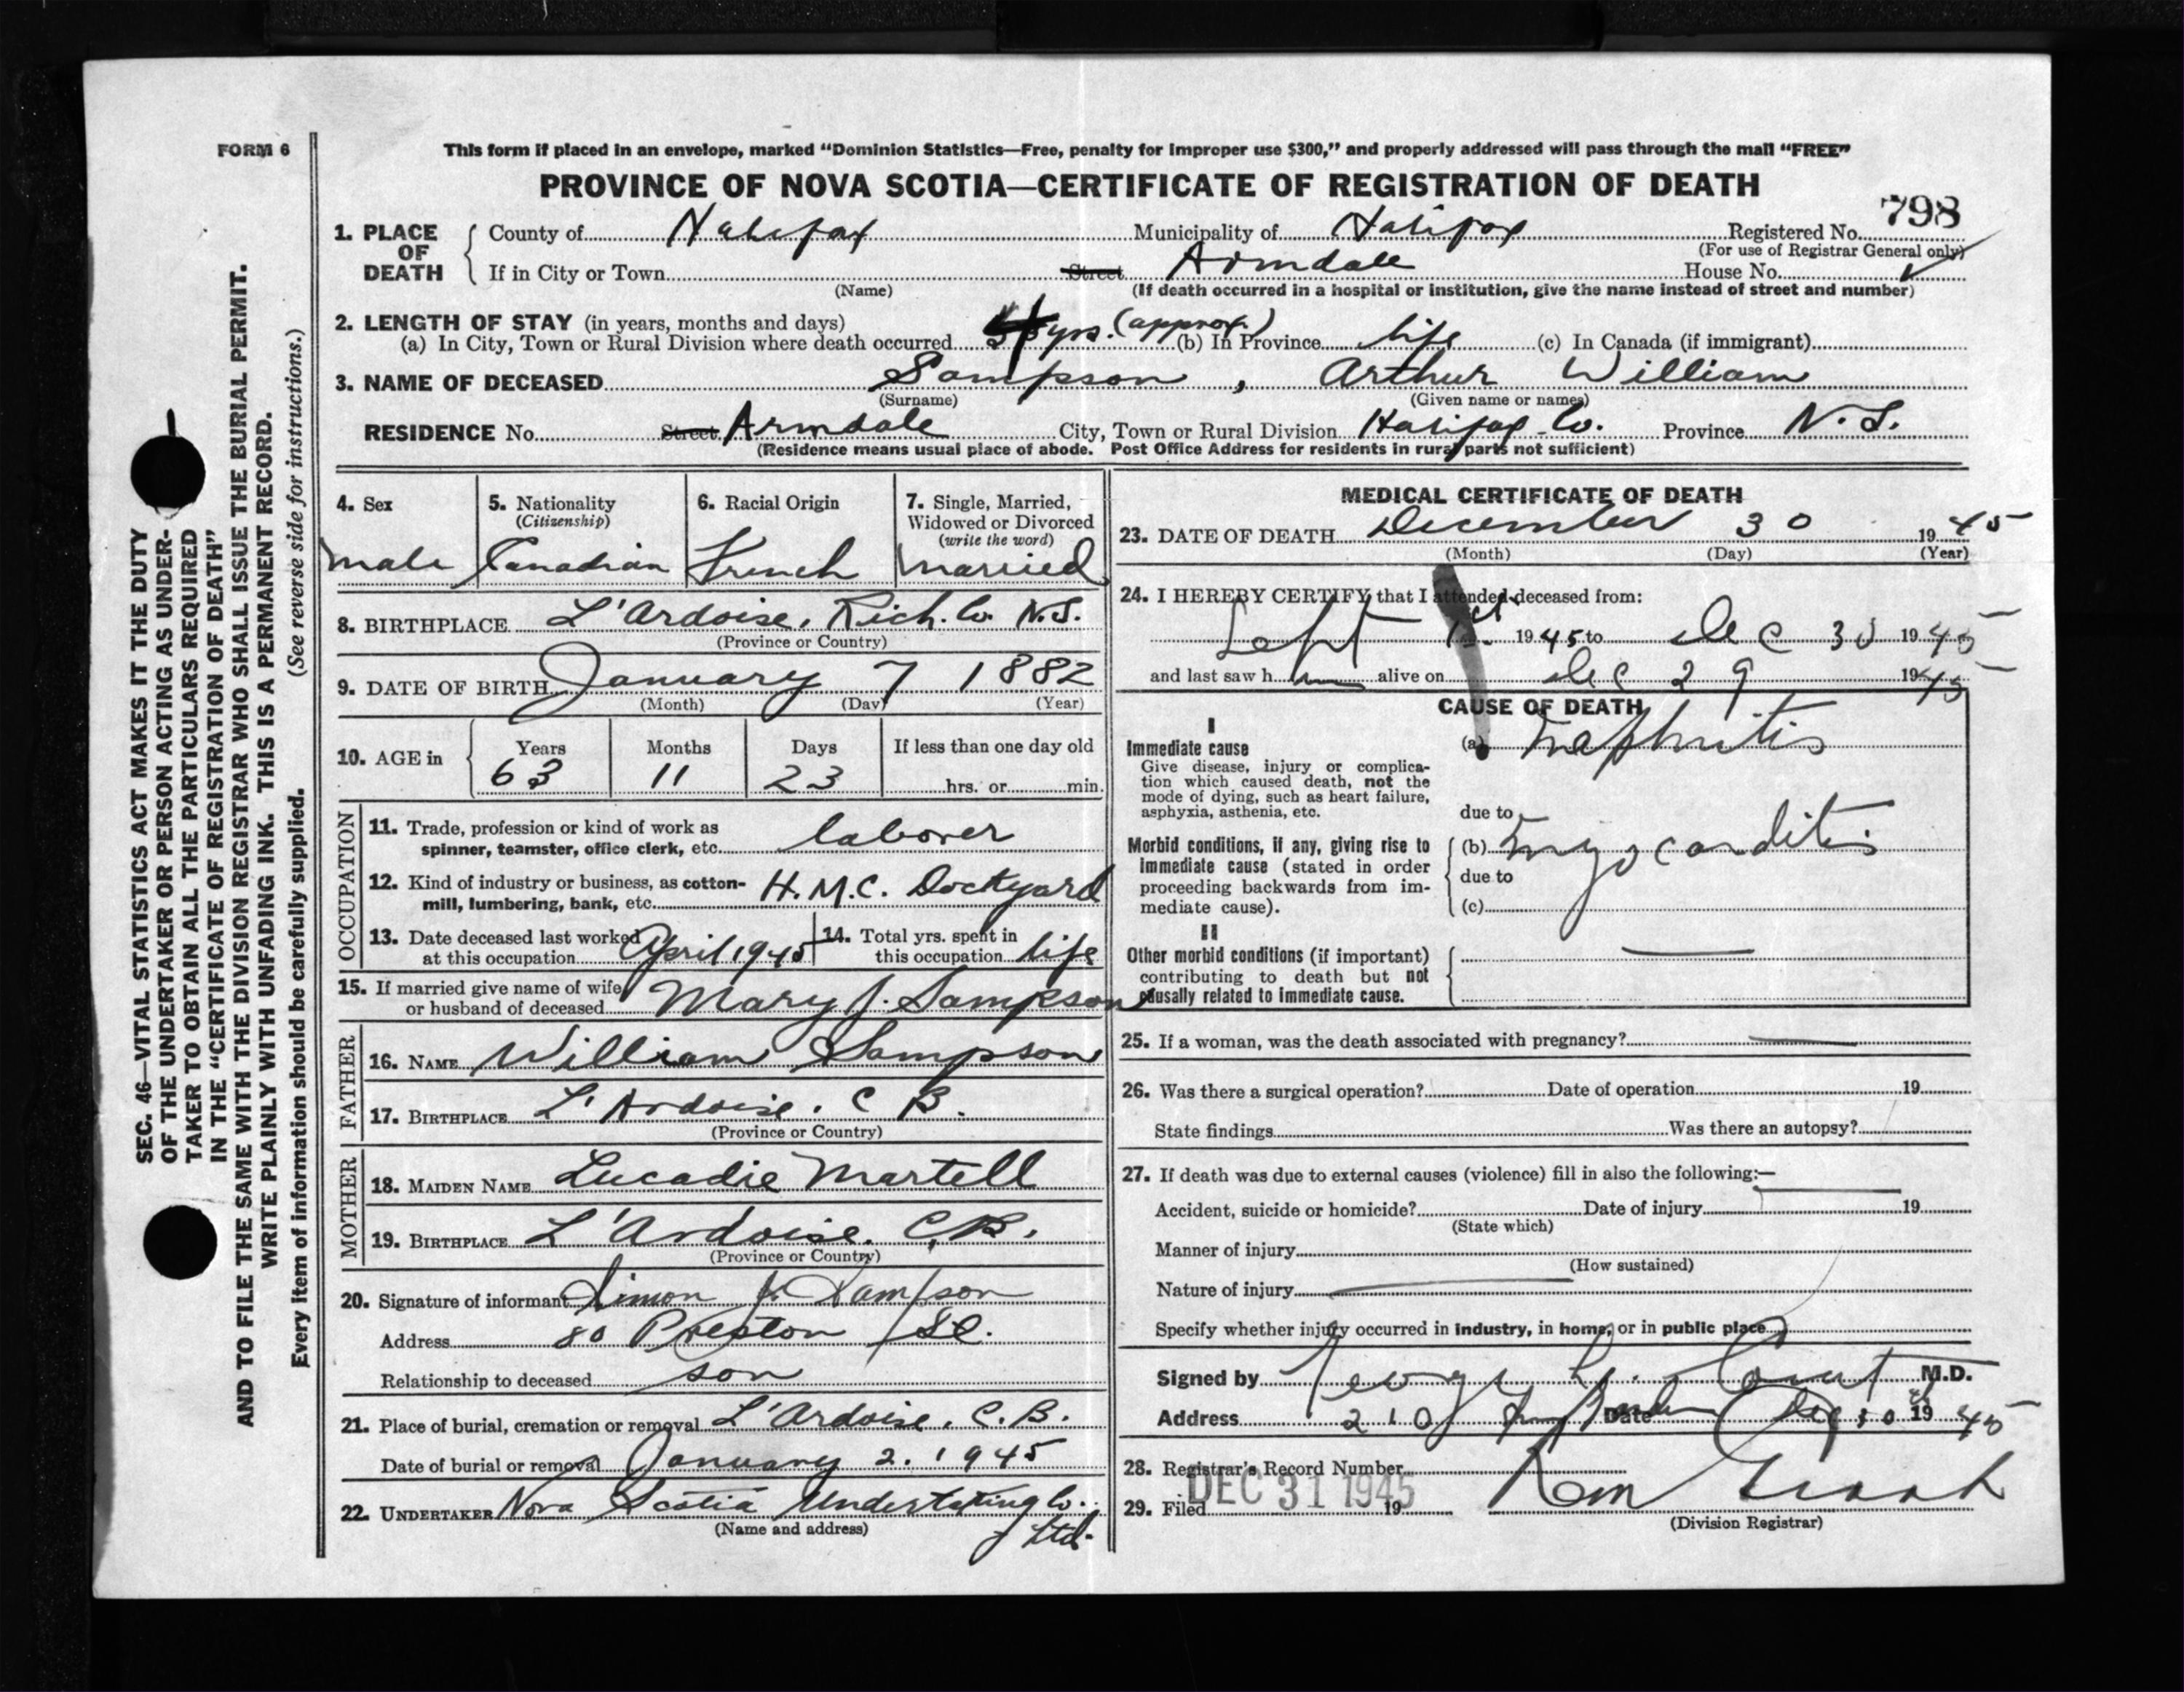 FORM 6
This form if placed in an envelope, marked “Dominion Statistics—Free, penalty for improper use $300,” and properly addressed will pass through the mail “FREE”
PROVINCE OF NOVA SCOTIA—CERTIFICATE OF REGISTRATION OF DEATH
798
1. PLACE OF DEATH County of Halifax Municipality of Halifax Registered No.
(For use of Registrar General only)
If in City or Town Street Armdale House No.
(Name) (If death occurred in a hospital or institution, give the name instead of street and number)
2. LENGTH OF STAY (in years, months and days)
(a) In City, Town or Rural Division where death occurred yrs. (approx.) (b) In Province life (c) In Canada (if immigrant)
3. NAME OF DECEASED Sampson, Arthur William
(Surname) (Given name or names)
RESIDENCE No. Street Armdale City, Town or Rural Division Halifax Co. Province N.S.
(Residence means usual place of abode. Post Office Address for residents in rural parts not sufficient)
4. Sex
male
5. Nationality
(Citizenship)
Canadian
6. Racial Origin
French
7. Single, Married,
Widowed or Divorced
(write the word)
Married
8. BIRTHPLACE L'Ardoise, Rich. Co. N.S.
(Province or Country)
9. DATE OF BIRTH January 7 1882
(Month) (Day) (Year)
10. AGE in Years Months Days If less than one day old
63 11 23 hrs. or min.
OCCUPATION
11. Trade, profession or kind of work as
spinner, teamster, office clerk, etc. laborer
12. Kind of industry or business, as cotton-
mill, lumbering, bank, etc. H.M.C. Dockyard
13. Date deceased last worked
at this occupation April 1945
14. Total yrs. spent in
this occupation life
15. If married give name of wife
or husband of deceased Mary J. Sampson
FATHER
16. NAME William Sampson
17. BIRTHPLACE L'Ardoise, C B.
(Province or Country)
MOTHER
18. MAIDEN NAME Lucadie Martell
19. BIRTHPLACE L'Ardoise. C.B.
(Province or Country)
20. Signature of informant Simon J. Sampson
Address 80 Preston St.
Relationship to deceased son
21. Place of burial, cremation or removal L'Ardoise, C.B.
Date of burial or removal January 2. 1945
22. UNDERTAKER Nova Scotia Undertaking Co.
Ltd.
(Name and address)
MEDICAL CERTIFICATE OF DEATH
23. DATE OF DEATH December 30 1945
(Month) (Day) (Year)
24. I HEREBY CERTIFY that I attended deceased from:
Sept 1st 1945 to Dec 30 1945
and last saw him alive on Dec 29 1945
CAUSE OF DEATH
I
Immediate cause
Give disease, injury or complica-
tion which caused death, not the
mode of dying, such as heart failure,
asphyxia, asthenia, etc.
(a) Nephritis
due to
Morbid conditions, if any, giving rise to
immediate cause (stated in order
proceeding backwards from im-
mediate cause).
(b) Myocarditis
due to
(c)
II
Other morbid conditions (if important)
contributing to death but not
causally related to immediate cause.
25. If a woman, was the death associated with pregnancy?
26. Was there a surgical operation? Date of operation 19
State findings Was there an autopsy?
27. If death was due to external causes (violence) fill in also the following:—
Accident, suicide or homicide? Date of injury 19
(State which)
Manner of injury
(How sustained)
Nature of injury
Specify whether injury occurred in industry, in home, or in public place
Signed by George M.D.
Address 210 Date Dec 30th 1945
28. Registrar's Record Number
29. Filed DEC 31 1945 19
(Division Registrar)
SEC. 46—VITAL STATISTICS ACT MAKES IT THE DUTY
OF THE UNDERTAKER OR PERSON ACTING AS UNDER-
TAKER TO OBTAIN ALL THE PARTICULARS REQUIRED
IN THE “CERTIFICATE OF REGISTRATION OF DEATH”
AND TO FILE THE SAME WITH THE DIVISION REGISTRAR WHO SHALL ISSUE THE BURIAL PERMIT.
WRITE PLAINLY WITH UNFADING INK. THIS IS A PERMANENT RECORD.
Every item of information should be carefully supplied. (See reverse side for instructions.)